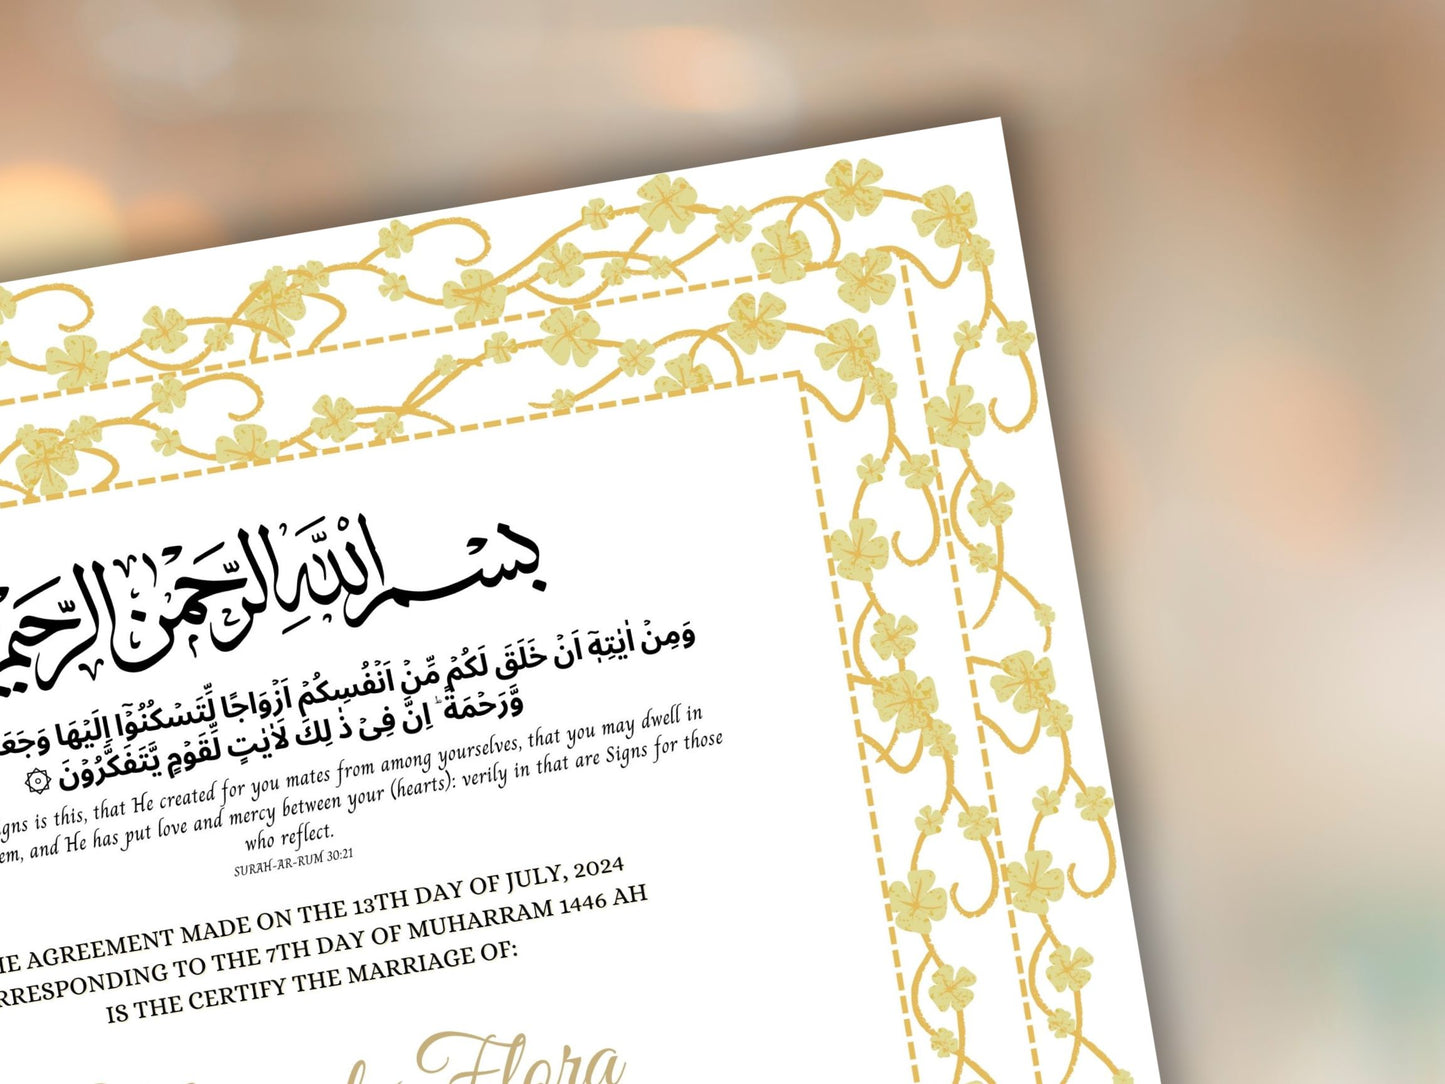 بِسْمِ اللّٰهِ الرَّحْمٰنِ الرَّحِيْمِ
وَمِنْ اٰيٰتِهٖۤ اَنْ خَلَقَ لَكُمْ مِّنْ اَنْفُسِكُمْ اَزْوَاجًا لِّتَسْكُنُوْۤا اِلَيْهَا
وَّرَحْمَةً ؕ اِنَّ فِيْ ذٰ لِكَ لَاٰيٰتٍ لِّقَوْمٍ يَّتَفَكَّرُوْنَ ۞
is this, that He created for you mates from among yourselves, that you may dwell in
and He has put love and mercy between your (hearts): verily in that are Signs for those
who reflect.
SURAH-AR-RUM 30:21
AGREEMENT MADE ON THE 13TH DAY OF JULY, 2024
TO THE 7TH DAY OF MUHARRAM 1446 AH
IS THE CERTIFY THE MARRIAGE OF:
Flora